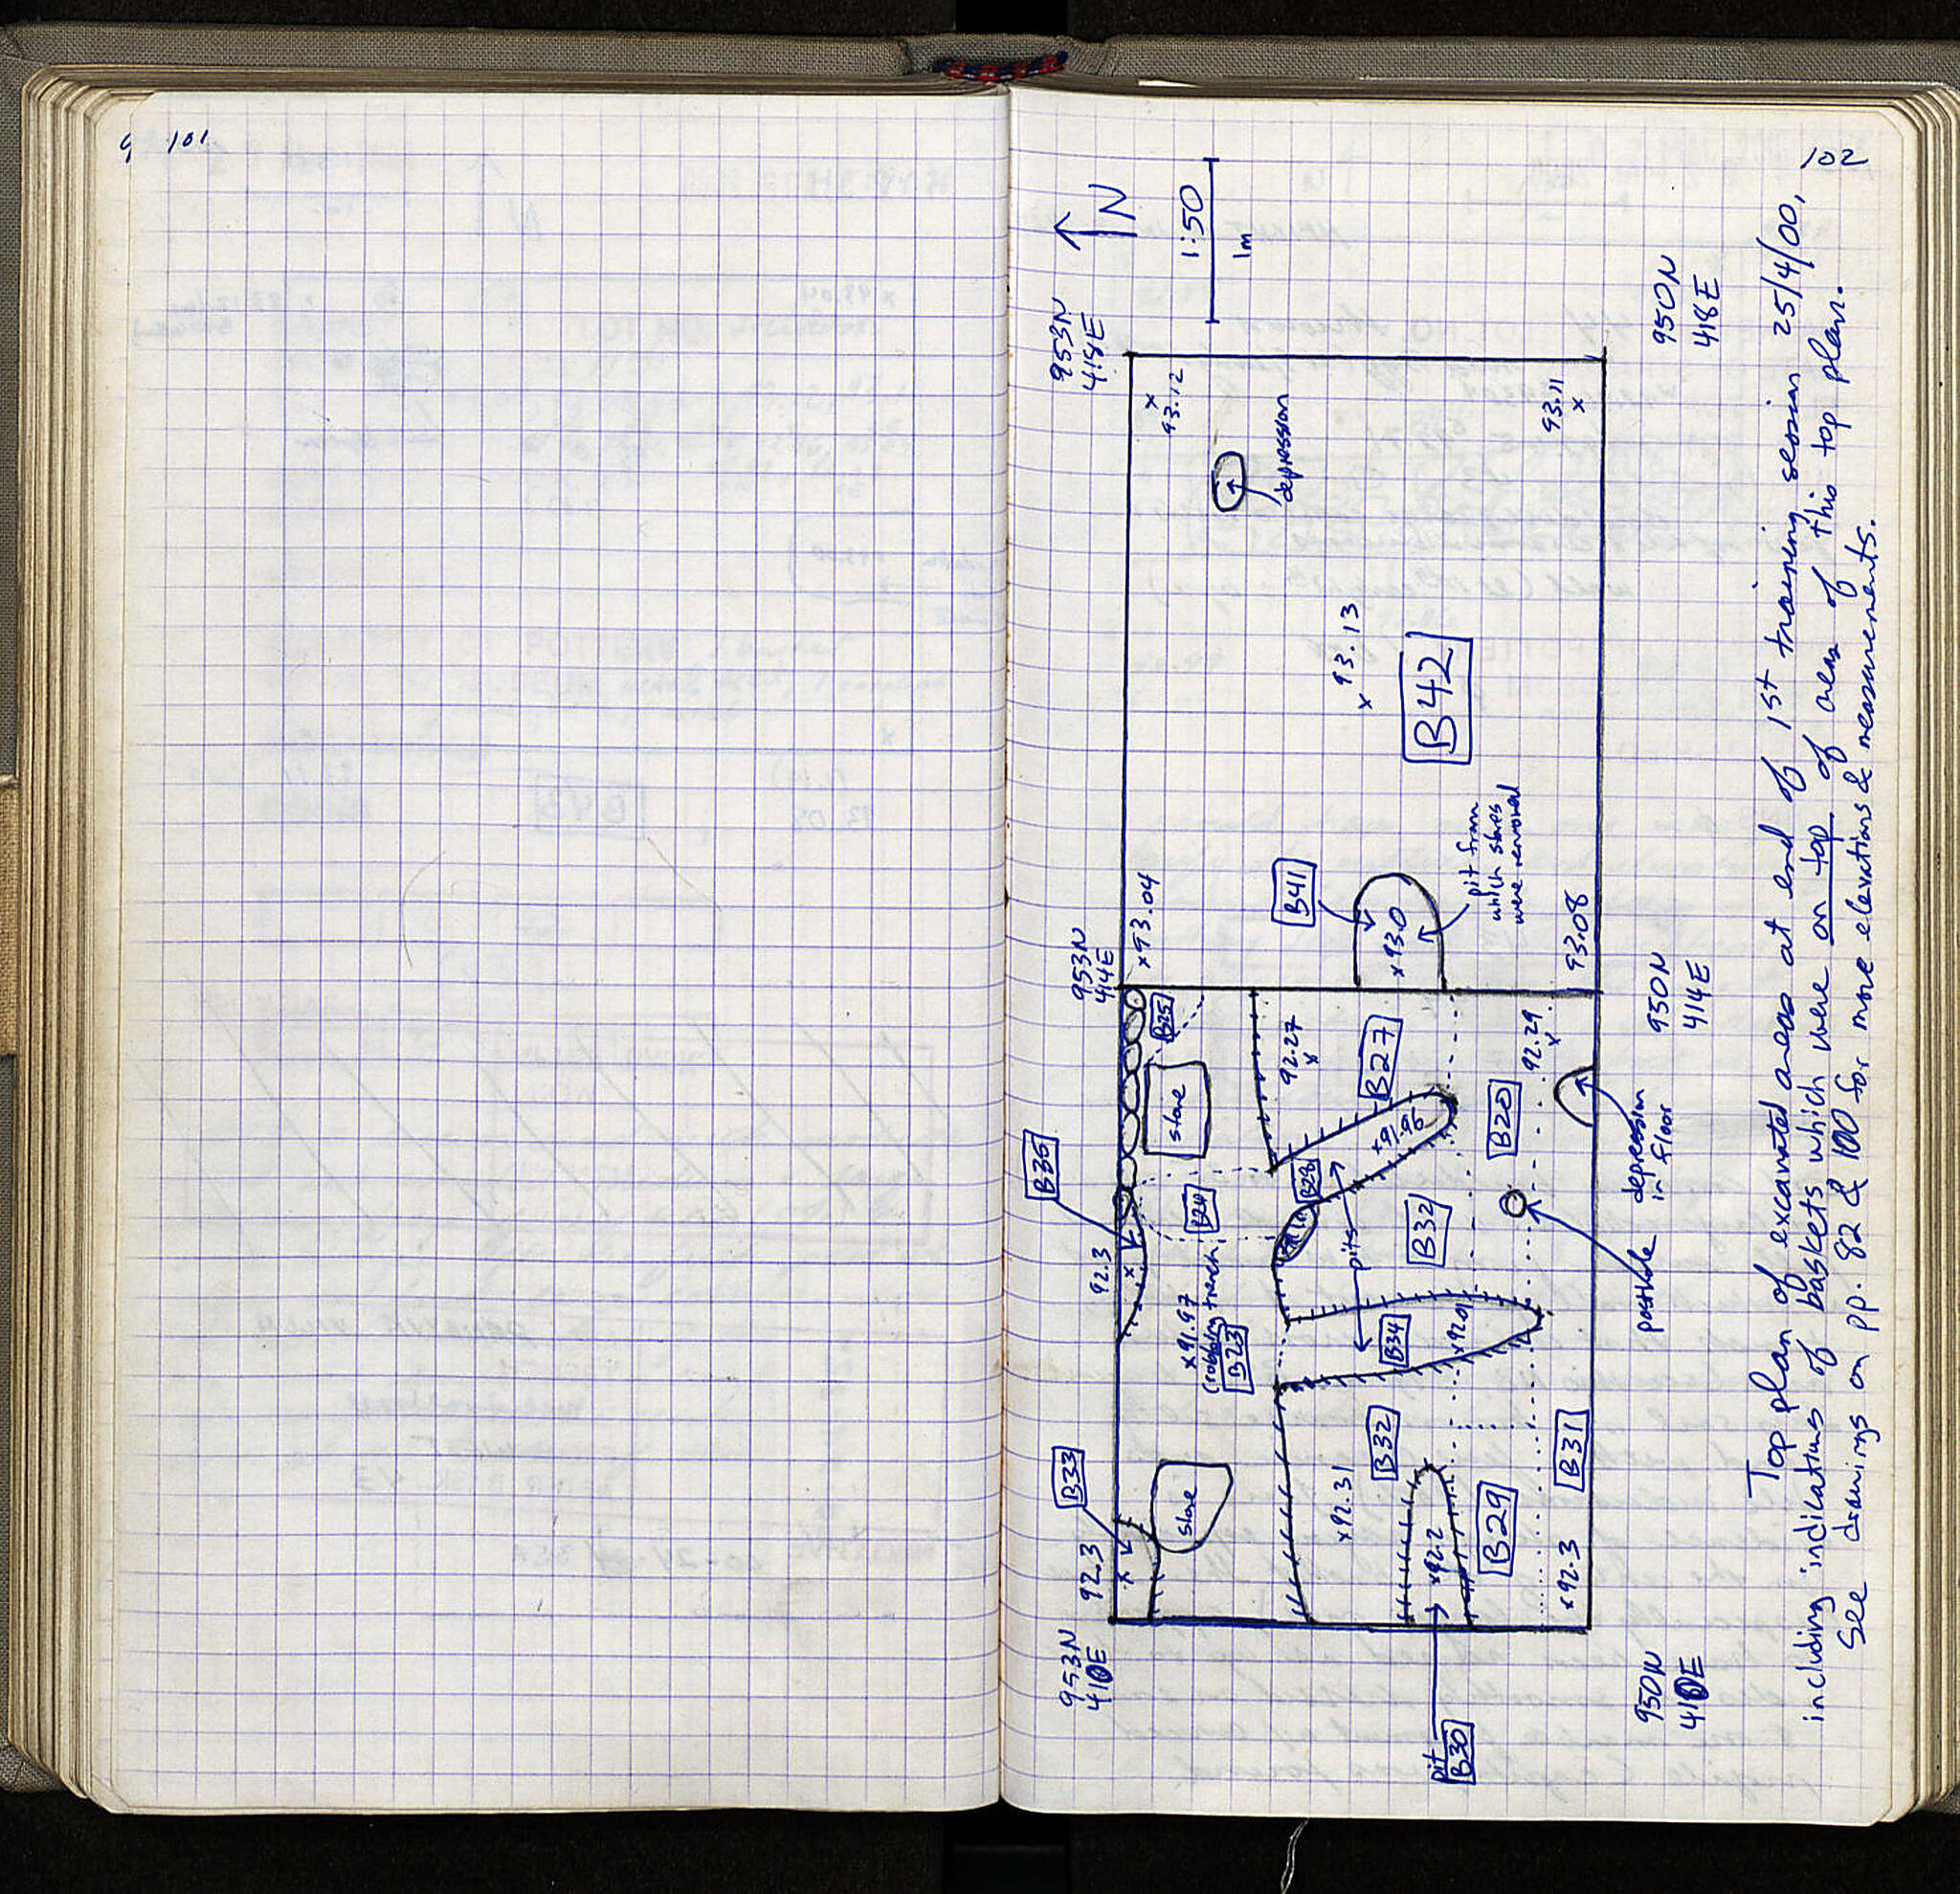 101
102
N
1:50
1m
953N
418E
950N
418E
x
93.12
depression
93.11
x
x 93.13
B42
B41
pit from
which stones
were removed
x93.0
x93.04
93.08
953N
414E
950N
414E
B25
stone
92.27
x
B27
92.29
x
B35
B24
B28
x91.96
B20
depression
in floor
92.3
x
x91.97
(robbing trench)
B23
pits
B32
posthole
B34
x92.01
B33
stone
92.3
x
x92.31
B32
B31
x92.2
B29
x92.3
953N
410E
950N
410E
pit
B30
Top plan of excavated areas at end of 1st training session 25/4/00,
including indications of baskets which were on top of areas of this top plan.
See drawings on pp. 82 & 100 for more elevations & measurements.